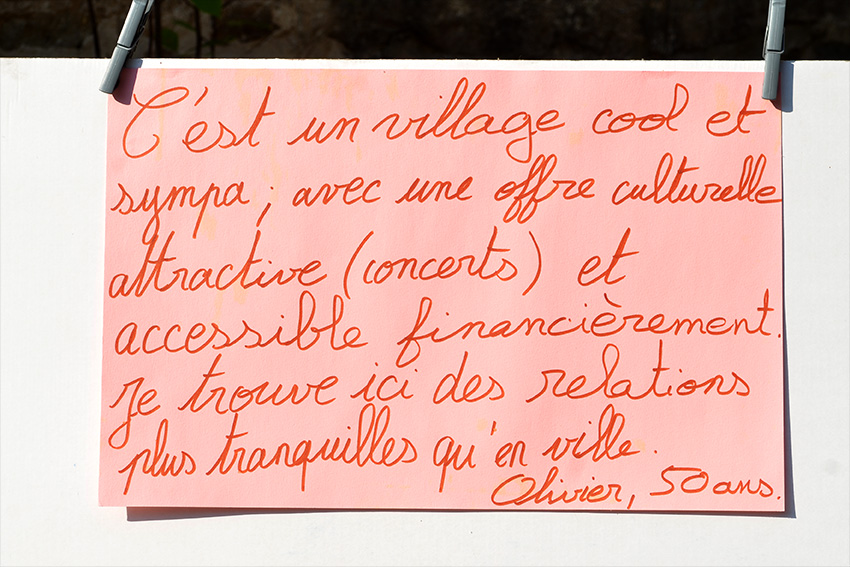 C'est un village cool et
sympa ; avec une offre culturelle
attractive (concerts) et
accessible financièrement.
Je trouve ici des relations
plus tranquilles qu'en ville.
Olivier, 50 ans.